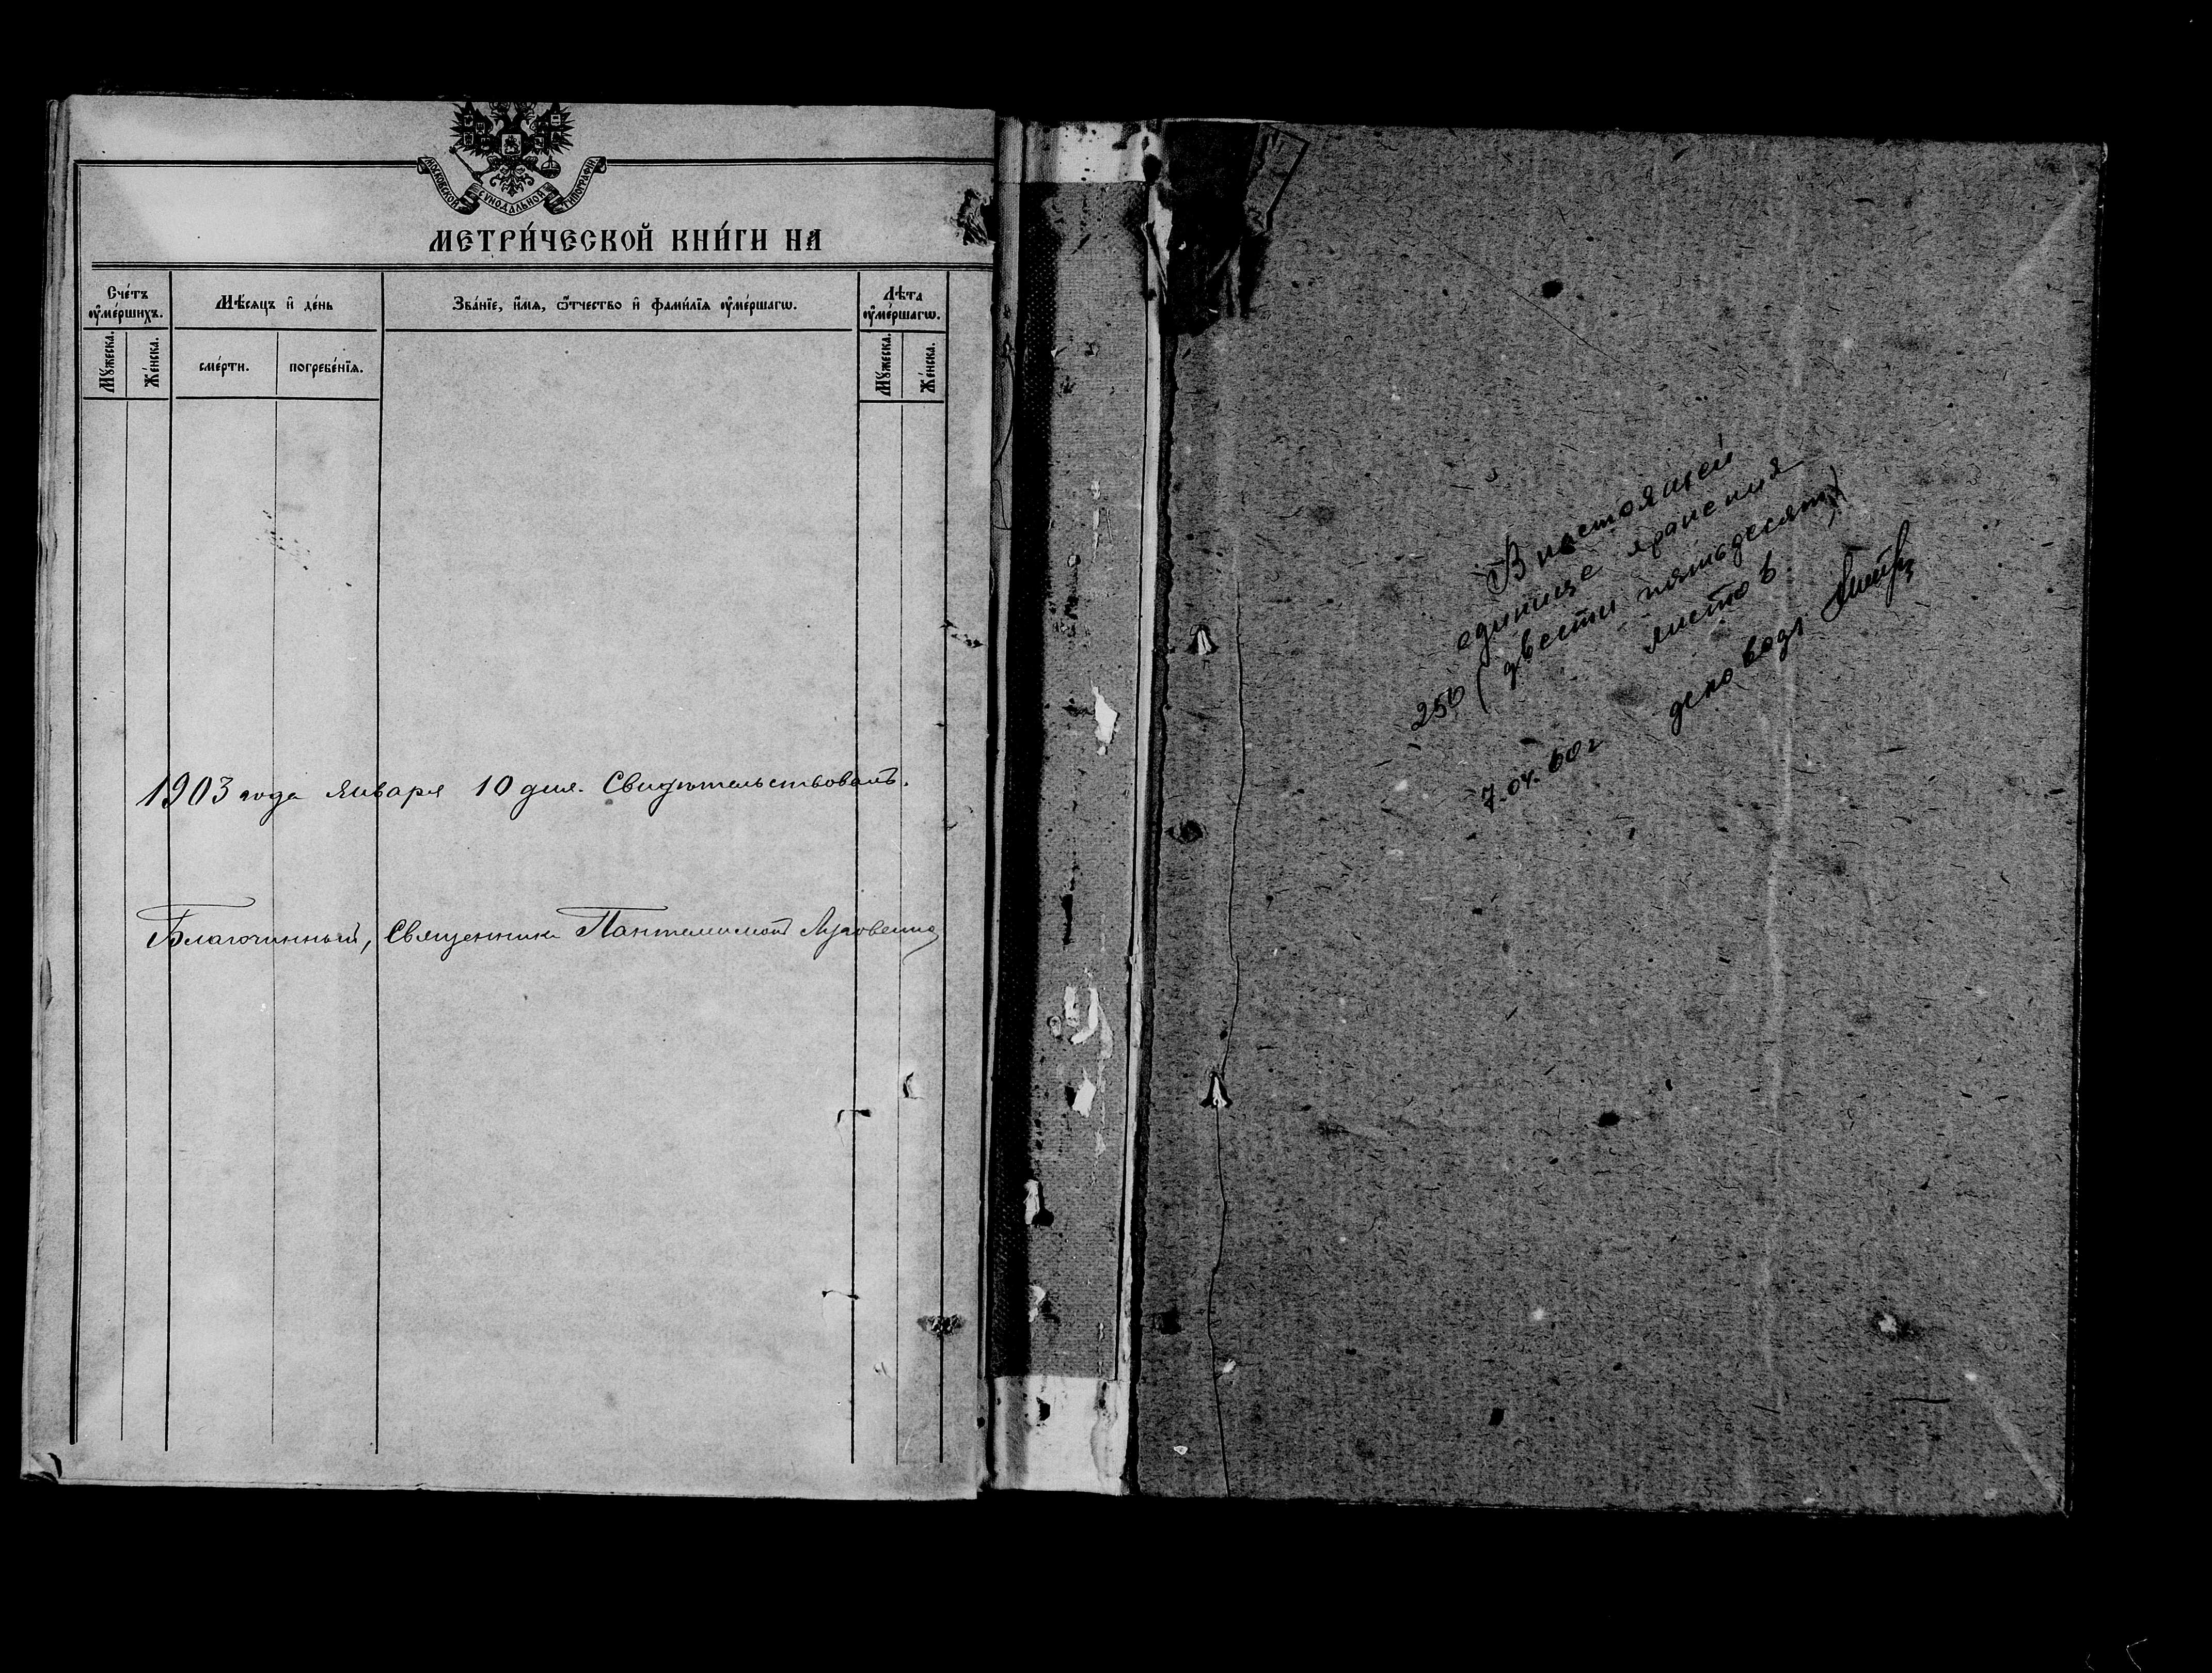 МОСКОВСКОЙ СѴНОДАЛЬНОЙ ТИПОГРАФІИ
МЕТРИ́ЧЕСКОЙ КНИ́ГИ НА
Сче́тъ ᲂу҆ме́ршихъ.
Мѣ́сяцъ и҆ де́нь
Зва́нїе, и҆́мя, ѻ҆́тчество и҆ фами́лїя ᲂу҆ме́ршагѡ.
Лѣта ᲂу҆ме́ршагѡ.
Мꙋ́жеска.
Же́нска.
сме́рти.
погребе́нїя.
Мꙋ́жеска.
Же́нска.
1903 года Января 10 дня. Свидѣтельствовалъ.
Благочинный, Священникъ Пантелимонъ
В настоящей
единице хранения
250 (двести пятьдесят)
листов
7.04.60г деловод